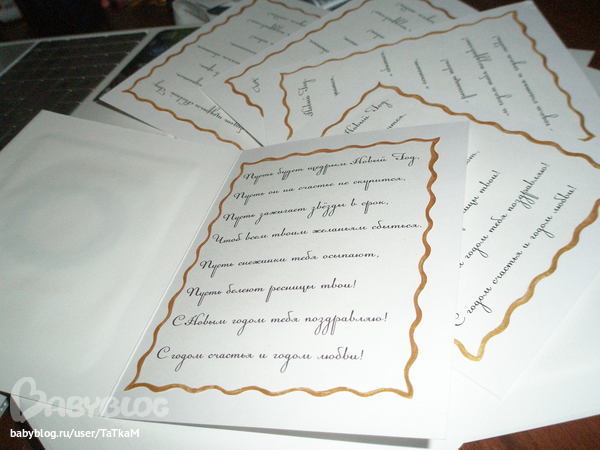 Пусть будет щедрым Новый Год,
Пусть он на счастье не скупится,
Пусть зажигает звёзды в срок,
Чтоб всем твоим желаньям сбыться.
Пусть снежинки тебя осыпают,
Пусть белеют ресницы твои!
С Новым годом тебя поздравляю!
С годом счастья и годом любви!
Новый Год,
ресницы твои!
годом тебя поздравляю!
С годом счастья и годом любви!
BABYBLOG
babyblog.ru/user/TaTkaM